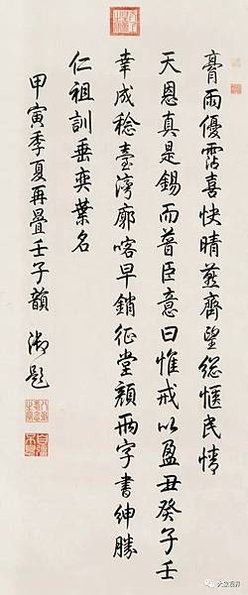 膏雨優霑喜快晴齊望總愜民情
天恩真是錫而普臣意曰惟戒以盈丑癸子壬
幸成稔臺灣廓喀早銷征堂顏兩字書紳勝
仁祖訓垂奕葉名
甲寅季夏再疊壬子韻 御題
八徵耄念之寶
自強不息